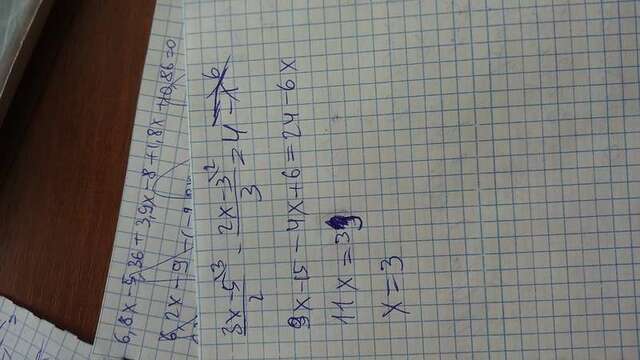 6,8x-5,36+3,9x-8+1,8x+10,86=0
6,2x-9
\frac{3x-5}{2}^{\3} - \frac{2x-3}{3}^{\2} = 4-x^{\6}
9x-15-4x+6=24-6x
11x=33
x=3